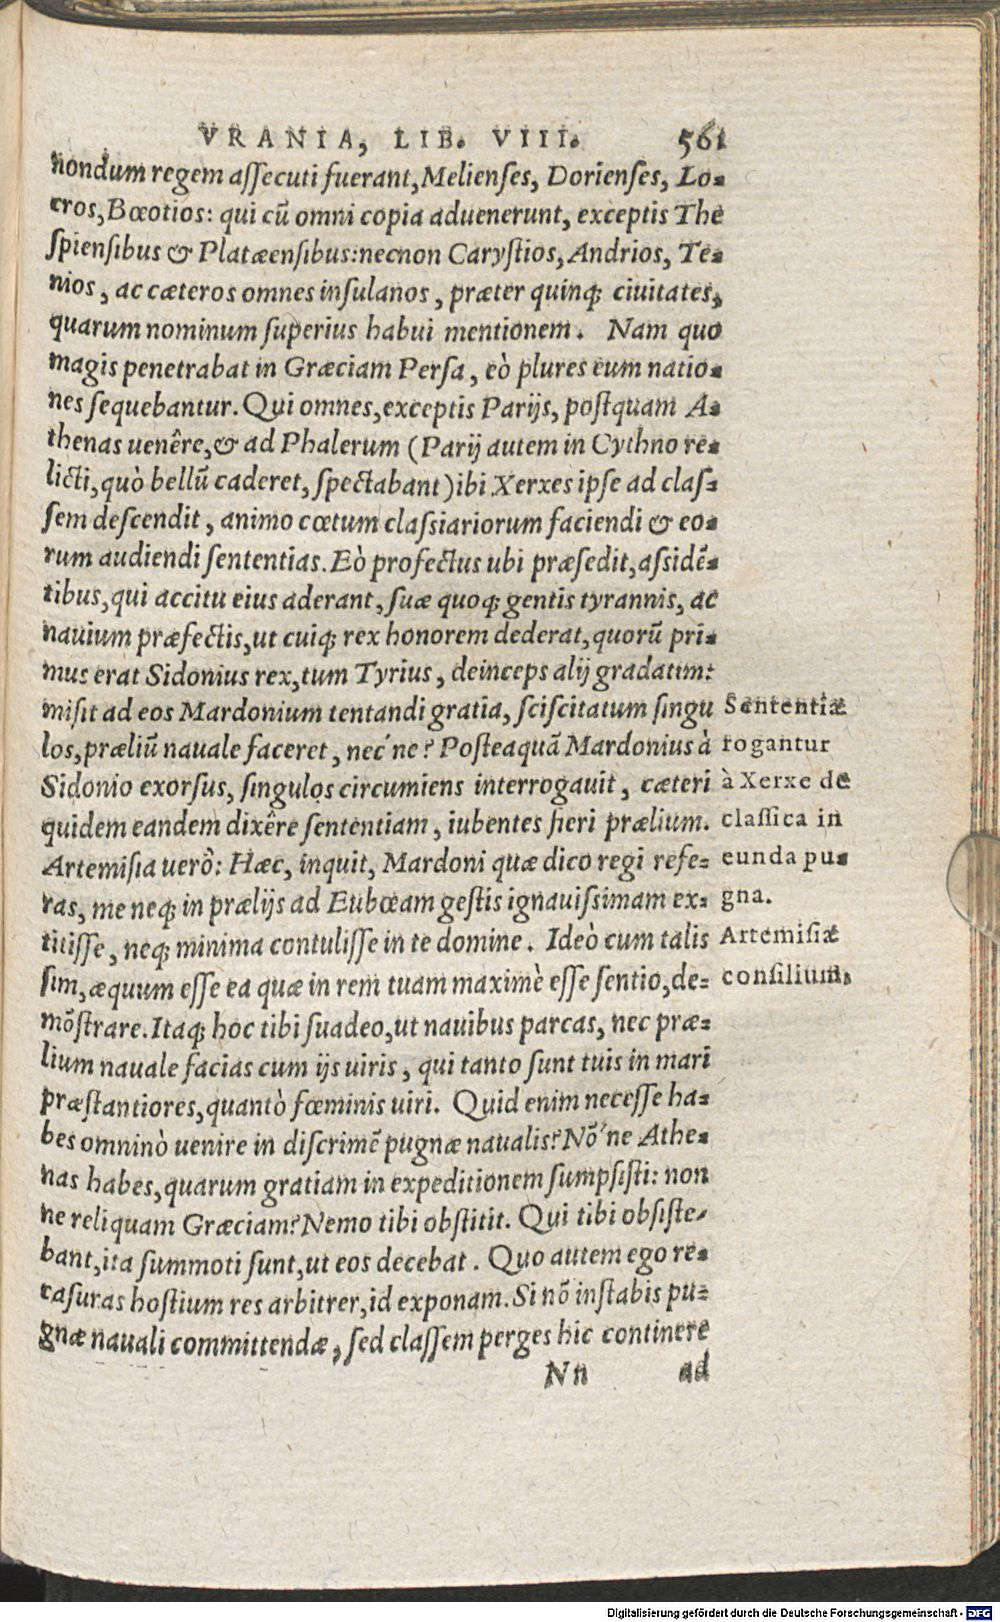 VRANIA, LIB. VIII. 561
nondum regem aſſecuti fuerant, Melienſes, Dorienſes, Lo-
cros, Bœotios: qui cũ omni copia aduenerunt, exceptis The
ſpienſibus & Platæenſibus: necnon Caryſtios, Andrios, Te-
nios, ac cæteros omnes inſulanos, præter quinq; ciuitates,
quarum nominum ſuperius habui mentionem. Nam quo
magis penetrabat in Græciam Perſa, eò plures eum natio-
nes ſequebantur. Qui omnes, exceptis Parijs, poſtquam A-
thenas uenêre, & ad Phalerum (Parij autem in Cythno re-
licti, quò bellũ caderet, ſpectabant) ibi Xerxes ipſe ad claſ-
ſem deſcendit, animo cœtum claſsiariorum faciendi & eo-
rum audiendi ſententias. Eò profectus ubi præſedit, aſsidẽ-
tibus, qui accitu eius aderant, ſuæ quoq; gentis tyrannis, ac
nauium præfectis, ut cuiq; rex honorem dederat, quorũ pri-
mus erat Sidonius rex, tum Tyrius, deinceps alij gradatim:
miſit ad eos Mardonium tentandi gratia, ſciſcitatum ſingu
los, præliũ nauale faceret, nec'ne? Poſteaquã Mardonius à
Sidonio exorſus, ſingulos circumiens interrogauit, cæteri
quidem eandem dixêre ſententiam, iubentes fieri prælium.
Artemiſia uerò: Hæc, inquit, Mardoni quæ dico regi refe-
ras, me neq; in prælijs ad Eubœam geſtis ignauiſsimam ex-
titiſſe, neq; minima contuliſſe in te domine. Ideò cum talis
ſim, æquum eſſe ea quæ in rem tuam maximè eſſe ſentio, de-
mõſtrare. Itaq; hoc tibi ſuadeo, ut nauibus parcas, nec præ-
lium nauale facias cum ijs uiris, qui tanto ſunt tuis in mari
præſtantiores, quantò fœminis uiri. Quid enim neceſſe ha-
bes omninò uenire in diſcrimẽ pugnæ naualis? Nõ'ne Athe-
nas habes, quarum gratiam in expeditionem ſumpſiſti: non
ne reliquam Græciam? Nemo tibi obſtitit. Qui tibi obſiſte-
bant, ita ſummoti ſunt, ut eos decebat. Quo autem ego re-
caſuras hoſtium res arbitrer, id exponam. Si nõ inſtabis pu-
gnæ nauali committendæ, ſed claſſem perges hic continere
Nn ad
Sententiæ
rogantur
à Xerxe de
claſſica in
eunda pu-
gna.
Artemiſiæ
conſilium.
Digitalisierung gefördert durch die Deutsche Forschungsgemeinschaft - DFG